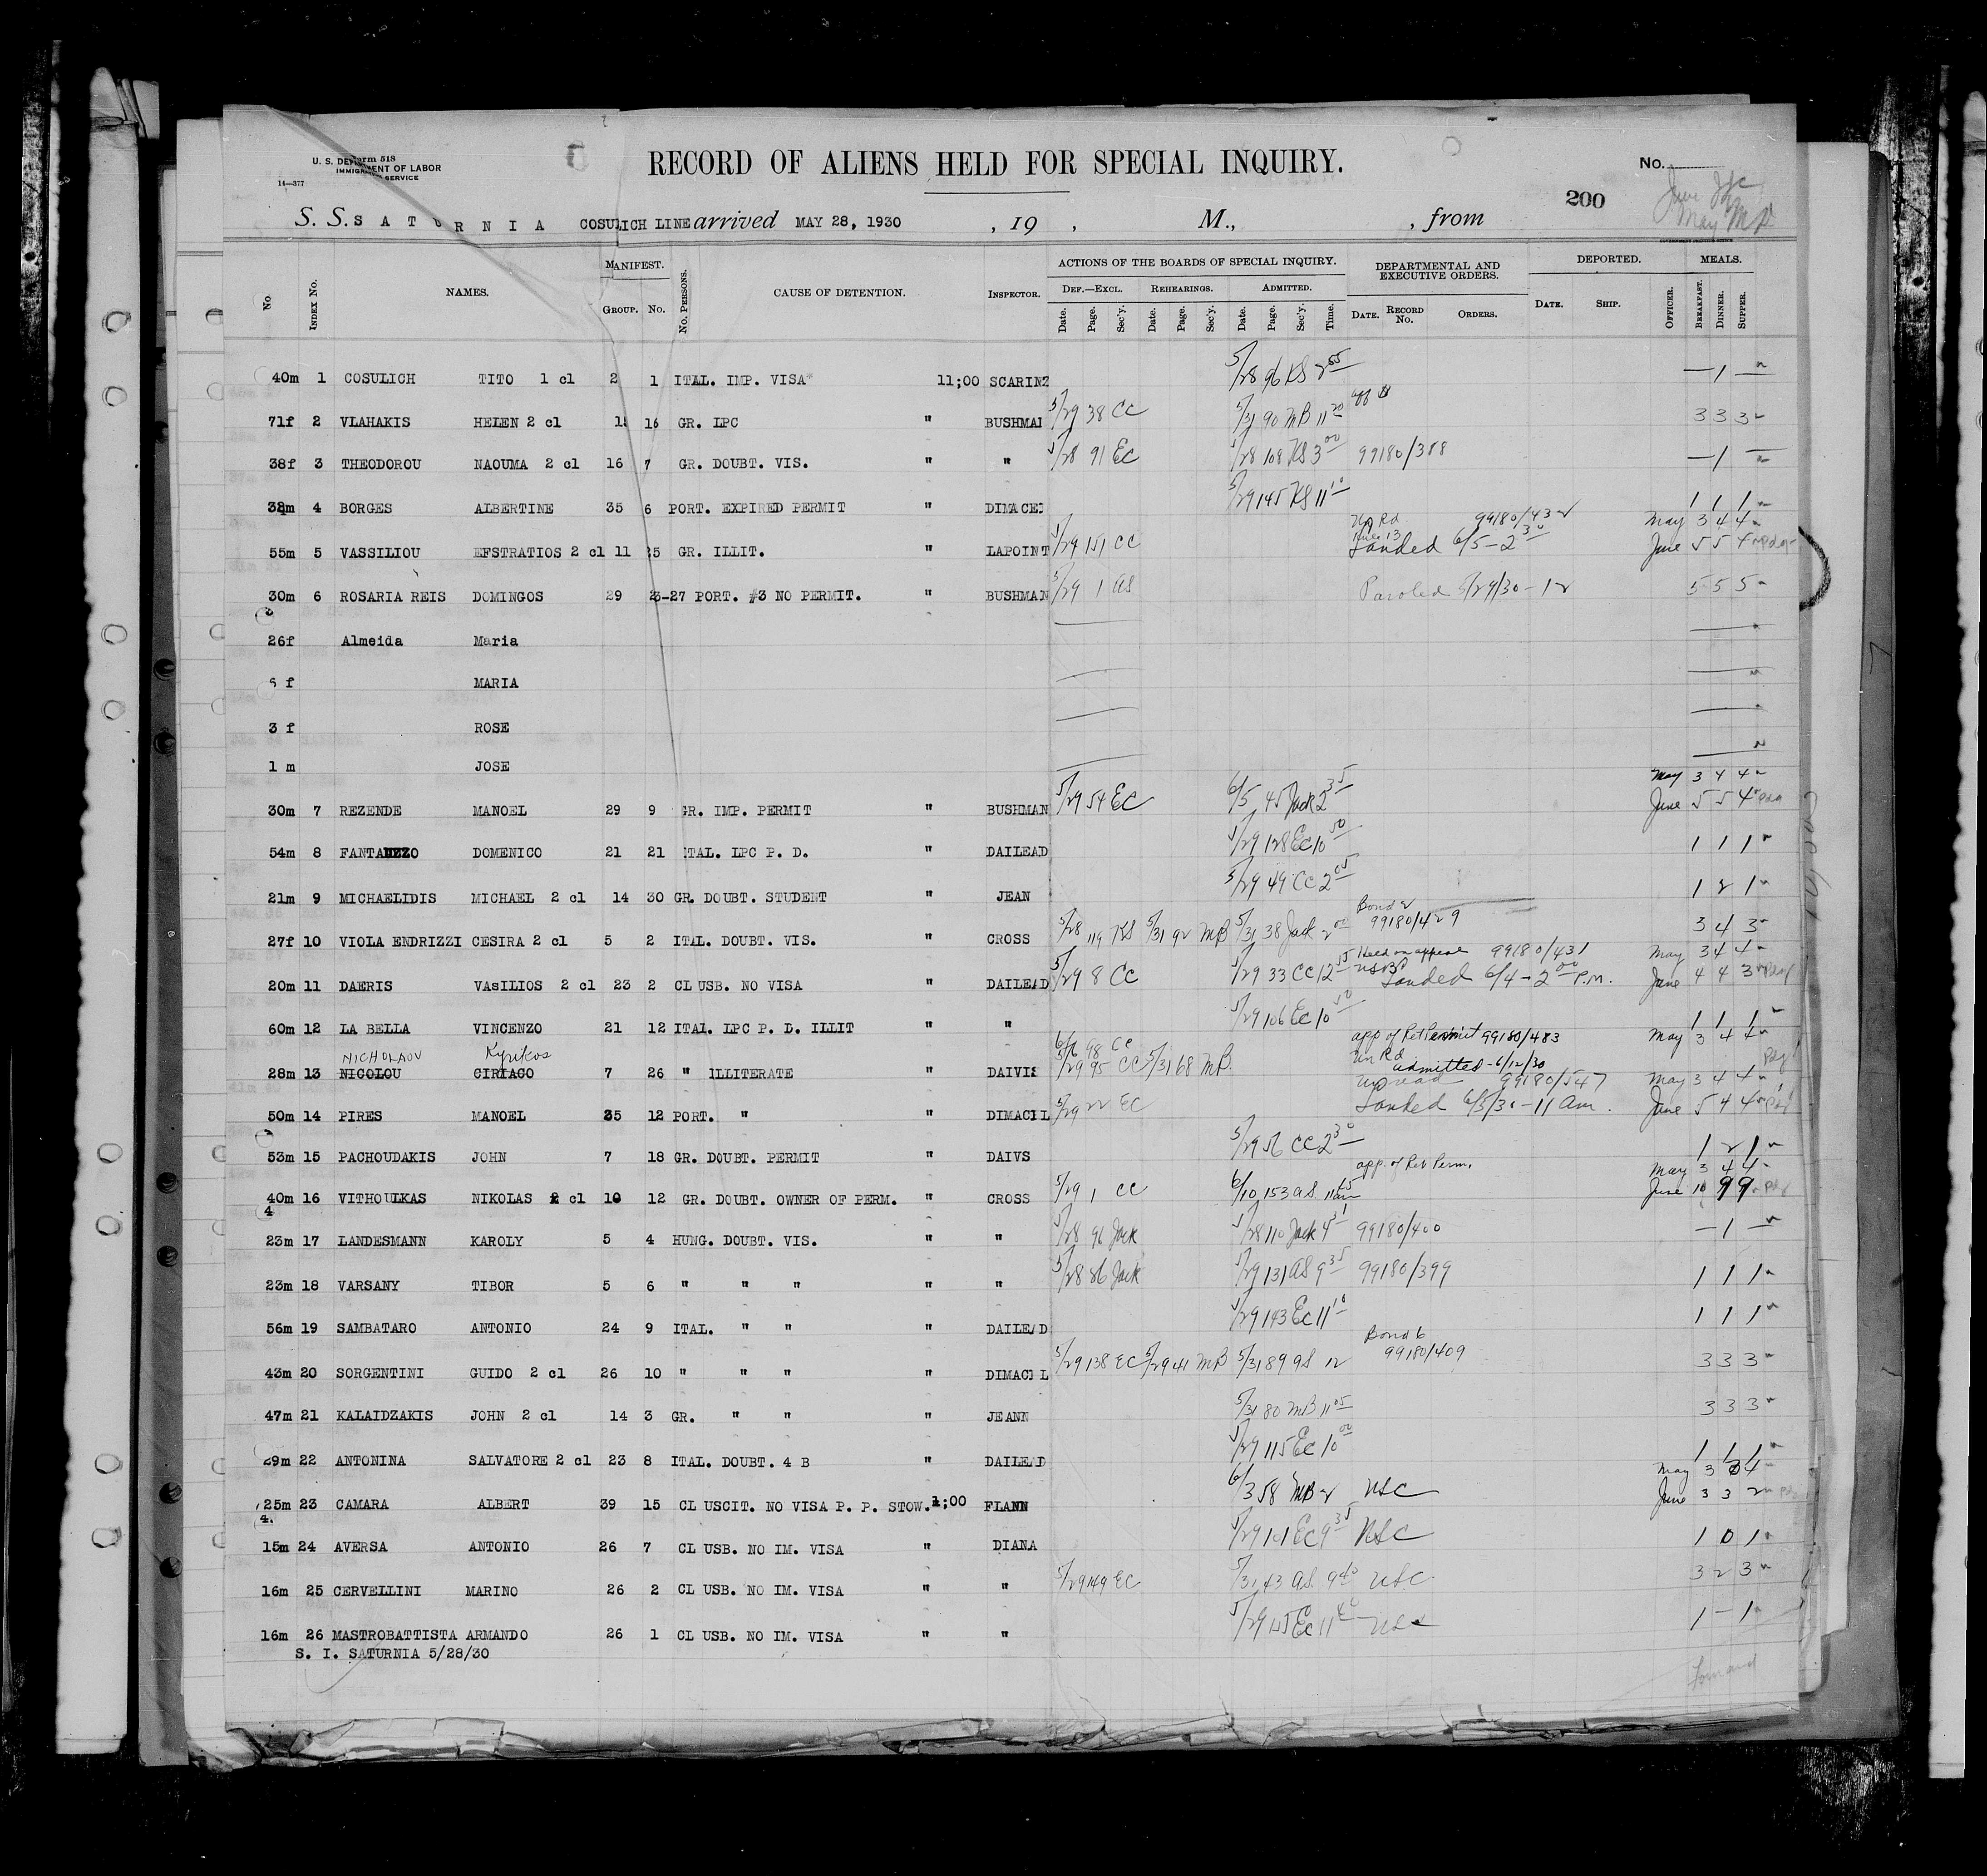 U. S. DE Form 518
MENT OF LABOR
IMMIGR SERVICE
14—377
RECORD OF ALIENS HELD FOR SPECIAL INQUIRY.
No.
200
June
May MB
S. S. S A T U R N I A COSULICH LINE arrived MAY 28, 1930 , 19 , M., , from
No. INDEX No. NAMES. MANIFEST. GROUP. No. No. PERSONS. CAUSE OF DETENTION. INSPECTOR.
ACTIONS OF THE BOARDS OF SPECIAL INQUIRY. DEF.—EXCL. REHEARINGS. ADMITTED.
Date. Page. Sec'y. Date. Page. Sec'y. Date. Page. Sec'y. Time.
DEPARTMENTAL AND EXECUTIVE ORDERS. DATE. RECORD No. ORDERS.
DEPORTED. DATE. SHIP. OFFICER. MEALS. BREAKFAST. DINNER. SUPPER.
40m 1 COSULICH TITO 1 cl 2 1 ITAL. IMP. VISA 11;00 SCARINZ 5/28 96 KS 2 55 — 1 —
71f 2 VLAHAKIS HELEN 2 cl 16 GR. LPC " BUSHMA 5/29 38 CC 5/31 90 MB 11 20 3 3 3
38f 3 THEODOROU NAOUMA 2 cl 16 7 GR. DOUBT. VIS. " " 5/28 91 EC 5/28 108 KS 3 00 99180/388 — 1 —
38m 4 BORGES ALBERTINE 35 6 PORT. EXPIRED PERMIT " DIMACE 5/29 145 KS 11 10 1 1 1
Rd 99180/432 May 3 4 4
55m 5 VASSILIOU EFSTRATIOS 2 cl 11 GR. ILLIT. " LAPOINT 5/29 151 CC Landed 6/5 - 2 30 June 5 5 4
30m 6 ROSARIA REIS DOMINGOS 29 23-27 PORT. #3 NO PERMIT. " BUSHMAN 5/29 1 AS Paroled 5/29/30 - 12 5 5 5
26f Almeida Maria
f MARIA
3 f ROSE
1 m JOSE
May 3 4 4
30m 7 REZENDE MANOEL 29 9 GR. IMP. PERMIT " BUSHMAN 5/29 54 EC 6/5 45 Jack 2 35 June 5 5 4
54m 8 FANTAUZZO DOMENICO 21 21 ITAL. LPC P. D. " DAILEAD 5/29 128 EC 10 50 1 1 1
21m 9 MICHAELIDIS MICHAEL 2 cl 14 30 GR. DOUBT. STUDENT " JEAN 5/29 49 CC 2 05 1 2 1
Bond 2
27f 10 VIOLA ENDRIZZI CESIRA 2 cl 5 2 ITAL. DOUBT. VIS. " CROSS 5/28 119 KS 5/31 92 MB 5/31 38 Jack 2 00 99180/429 3 4 3
Held on appeal 99180/431 May 3 4 4
20m 11 DAERIS VASILIOS 2 cl 23 2 CL USB. NO VISA " DAILEAD 5/29 8 CC 5/29 33 CC 12 15 Landed 6/4 - 2 00 P.M. June 4 4 3
60m 12 LA BELLA VINCENZO 21 12 ITAL. LPC P. D. ILLIT " " 5/29 106 EC 10 50 1 1 1
6/6 98 CC app of Ret Permit 99180/483 May 3 4 4
NICHOLAOU Kyrikos
28m 13 NICOLOU CIRIACO 7 26 " ILLITERATE " DAIVIS 5/29 95 CC 5/31 68 MB Rd admitted - 6/12/30
99180/547 May 3 4 4
50m 14 PIRES MANOEL 35 12 PORT. " " DIMACIL 5/29 22 EC Landed 6/5/30 - 11 am. June 5 4 4
53m 15 PACHOUDAKIS JOHN 7 18 GR. DOUBT. PERMIT " DAIVS 5/29 56 CC 2 30 1 2 1
app. of Ret Perm. May 3 4 4
40m 16 VITHOULKAS NIKOLAS 2 cl 10 12 GR. DOUBT. OWNER OF PERM. " CROSS 5/29 1 CC 6/10 153 AS 11 15 am June 10 9 9
4
23m 17 LANDESMANN KAROLY 5 4 HUNG. DOUBT. VIS. " " 5/28 96 Jack 5/28 110 Jack 4 99180/400 — 1 —
23m 18 VARSANY TIBOR 5 6 " " " " " 5/28 86 Jack 5/29 131 AS 9 35 99180/399 1 1 1
56m 19 SAMBATARO ANTONIO 24 9 ITAL. " " " DAILEAD 5/29 143 EC 11 10 1 1 1
Bond 6
43m 20 SORGENTINI GUIDO 2 cl 26 10 " " " " DIMACIL 5/29 138 EC 5/29 41 MB 5/31 89 AS 12 99180/409 3 3 3
47m 21 KALAIDZAKIS JOHN 2 cl 14 3 GR. " " " JEANN 5/31 80 MB 11 05 3 3 3
29m 22 ANTONINA SALVATORE 2 cl 23 8 ITAL. DOUBT. 4 B " DAILEAD 5/29 115 EC 10 00 1 1 1
May 3 4
25m 23 CAMARA ALBERT 39 15 CL USCIT. NO VISA P. P. STOW. 1;00 FLANN 6/3 58 MB 2 USC June 3 3 2
4.
15m 24 AVERSA ANTONIO 26 7 CL USB. NO IM. VISA " DIANA 5/29 101 EC 9 35 USC 1 0 1
16m 25 CERVELLINI MARINO 26 2 CL USB. NO IM. VISA " " 5/29 149 EC 5/31 43 AS 9 40 USC 3 2 3
16m 26 MASTROBATTISTA ARMANDO 26 1 CL USB. NO IM. VISA " " 5/29 EC 11 USC 1 — 1
S. I. SATURNIA 5/28/30